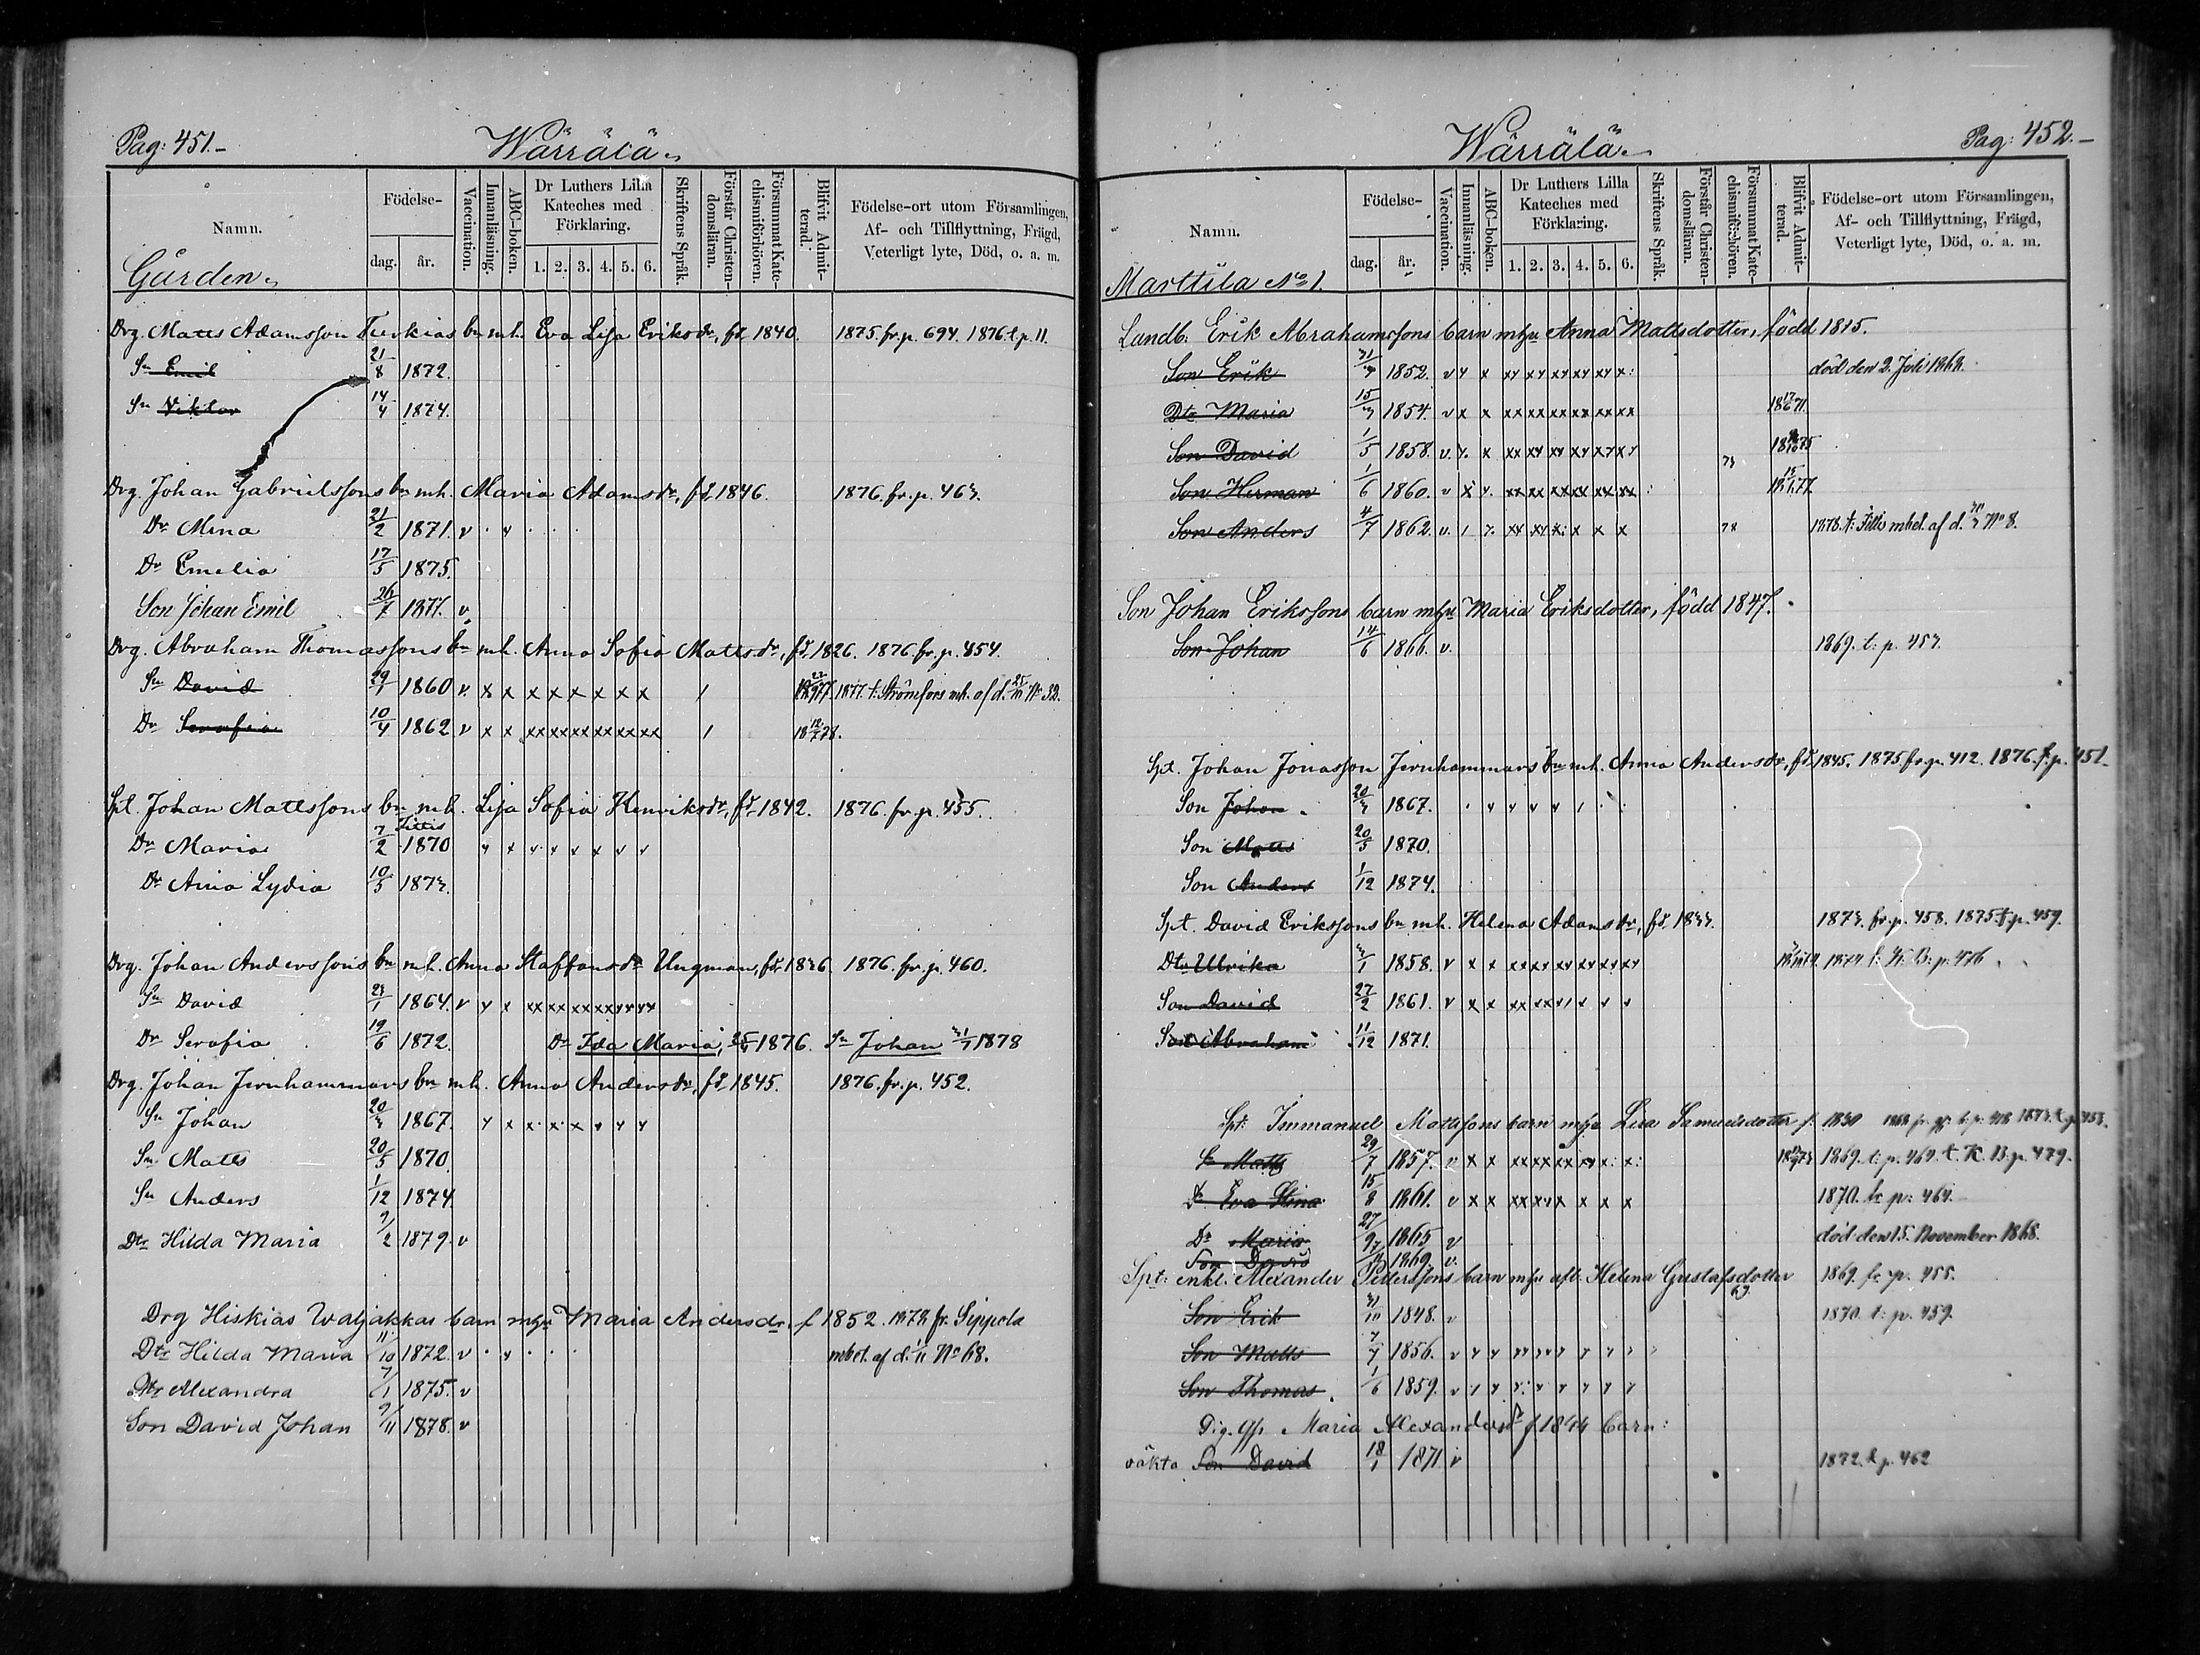 Pag: 451.-
Wärrälä.
Namn.
Födelse-
dag.
år.
Vaccination.
Innanläsning.
ABC-boken.
Dr Luthers Lilla
Kateches med
Förklaring.
1. 2. 3. 4. 5. 6.
Skriftens Språk.
Förstår Christen-
domsläran.
Försummat Kate-
chismiförhören.
Blifvit Admit-
terad.
Födelse-ort utom Församlingen,
Af- och Tillflyttning, Frägd,
Veterligt lyte, Död, o. a. m.
Gården.
Drg. Matts Adamsson Turkias bn mh. Eva Lisa Eriksdr, fd 1840. 1875. fr. p. 694. 1876. t. p. 11.
Sn Emil 21/8 1872.
Sn Viktor 14/4 1874.
Drg. Johan Gabrielssons bn mh. Maria Adamsdr, fd 1846. 1876. fr. p. 463.
Dr Mina 21/2 1871. v
Dr Emelia 17/5 1875.
Son Johan Emil 26/7 1877. v.
Drg. Abraham Thomassons bn mh. Anna Sofia Mattsdr, fd 1826. 1876. fr. p. 454.
Sn David 1860 v. x x x x x x x x 1 1877. t. Strömfors mb. af d. 25/11 No 32.
Dr Serafia 10/4 1862 v x x xx xx xx xx xx xx 1
Spt. Johan Mattssons bn mh. Lisa Sofia Henriksdr, fd 1842. 1876. fr. p. 455.
Dr Maria 7/2 Fittis 1870
Dr Aina Lydia 10/5 1873.
Drg. Johan Anderssons bn mh. Anna Staffansdr Ungman, fd 1836. 1876. fr. p. 460.
Sn David 23/1 1864. v
Dr Serafia 19/6 1872. Dr Ida Maria, 1876. Sn Johan 31/1 1878
Drg. Johan Jernhammars bn mh. Anna Andersdr, fd 1845. 1876. fr. p. 452.
Sn Johan 20/3 1867.
Sn Matts 20/5 1870.
Sn Anders 1/12 1874.
Dtr Hilda Maria 9/2 1879. v
Drg Hiskias Waljakkas barn mhu Maria Andersdr. f 1852. 1879 fr. Sippola
Dtr Hilda Maria 11/10 1872. v mbet. af d. 1/11 No 68.
Dtr Alexandra 7/1 1875. v
Son David Johan 9/11 1878. v
Wärrälä.
Pag: 452.-
Namn.
Födelse-
dag.
år.
Vaccination.
Innanläsning.
ABC-boken.
Dr Luthers Lilla
Kateches med
Förklaring.
1. 2. 3. 4. 5. 6.
Skriftens Språk.
Förstår Christen-
domsläran.
Försummat Kate-
chismiförhören.
Blifvit Admit-
terad.
Födelse-ort utom Församlingen,
Af- och Tillflyttning, Frägd,
Veterligt lyte, Död, o. a. m.
Marttila No 1.
Landb. Erik Abrahamssons barn mhu Anna Mattsdotter, född 1815.
Son Erik 1852. död den 2. Juli 1868.
Dtr Maria 15/3 1854. v x x xx xx xx xx xx xx
Son David 1/5 1858. v.
Son Herman 1/6 1860. v
Son Anders 4/7 1862. v. 78 1878. t. Fittis mbet. af d. No 8.
Son Johan Erikssons barn mhu Maria Eriksdotter, född 1847.
Son Johan 14/6 1866. v. 1869. t. p. 457.
Spt. Johan Jonasson Jernhammars bn mh. Anna Andersdr, fd 1845. 1875 fr. p. 412. 1876. t. p. 451.
Son Johan 20/3 1867.
Son Matts 20/5 1870.
Son Anders 1/12 1874.
Spt. David Erikssons bn mh. Helena Adamsdr, fd 1833. 1873. fr. p. 458. 1875 t. p. 459.
Dtr Ulrika 1858. v 1874 t. K. B. p. 476
Son David 27/2 1861. v
Son Abraham 11/12 1871.
Spt. Immanuel Mattssons barn mhu Lisa Samuelsdotter f. 1830
Sn Matts 29/7 1857. v 1869. t. p. 464. t. K. B. p. 479.
Dr Eva Stina 15/8 1861. v 1870. t. p. 464.
Dr Maria 27/9 1865 v död den 15. November 1868.
Son David 1869. v.
Spt. enkl. Alexander Petterssons barn mhu afl. Helena Gustafsdotter 1869. fr. p. 455.
Son Erik 31/10 1848. v 1870. t. p. 459.
Son Matts 1856. v
Son Thomas 1/6 1859. v
Pig. Maria Alexandersdr f 1844 barn:
oäkta Son David 18/1 1871 v 1872. t. p. 462